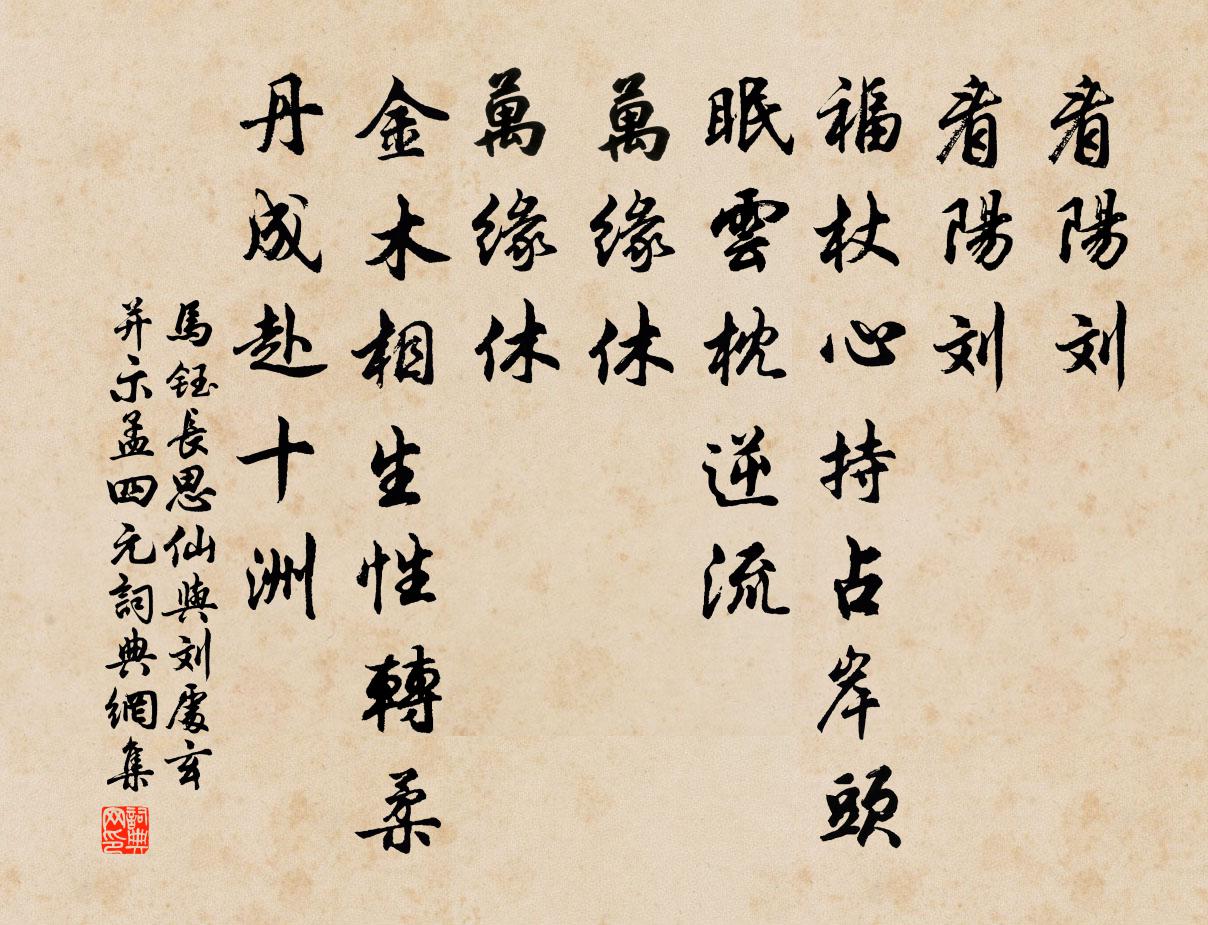 看陽刘
看陽刘
福杖心持占岸頭
眠雲枕逆流
萬緣休
萬緣休
金木相生性轉柔
丹成赴十洲
馬鈺長思仙與刘處玄
并示孟四元詞典網集
詞典网印